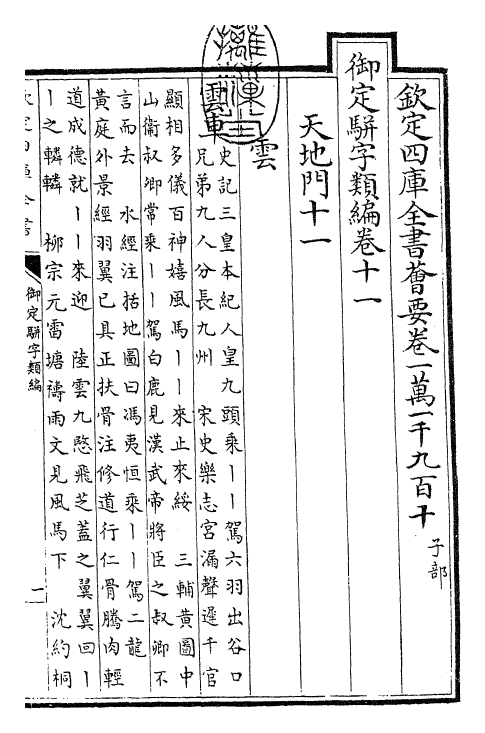 欽定四庫全書薈要卷一萬一千九百十 子部
御定駢字類編卷十一
天地門十一
雲
雲車 史記三皇本紀人皇九頭乘丨丨駕六羽出谷口
兄弟九人分長九州 宋史樂志宮漏聲遲千官
顯相多儀百神嬉風馬丨丨來止來綏 三輔黃圖中
山衛叔卿常乘丨丨駕白鹿見漢武帝將臣之叔卿不
言而去 水經注括地圖曰馮夷恒乘丨丨駕二龍
黃庭外景經羽翼已具正扶骨注修道行仁骨騰肉輕
道成德就丨丨來迎 陸雲九愍飛芝蓋之翼翼回丨
丨之轔轔 柳宗元雷塘禱雨文見風馬下 沈約桐
御定駢字類編
一